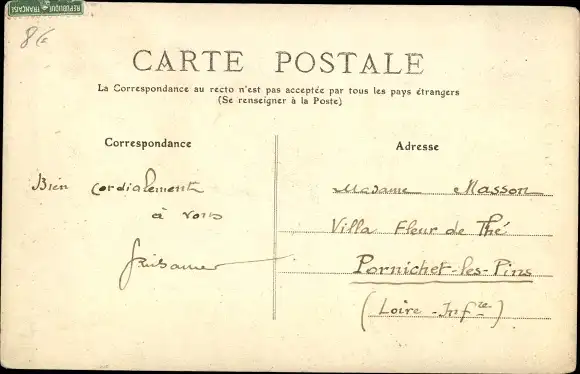 REPUBLIQUE FRANÇAISE
8 f
CARTE POSTALE
La Correspondance au recto n'est pas acceptée par tous les pays étrangers
(Se renseigner à la Poste)
Correspondance
Bien cordialement
à vous
Adresse
Madame Masson
Villa Fleur de Thé
Pornichet-les-Pins
(Loire-Infre)